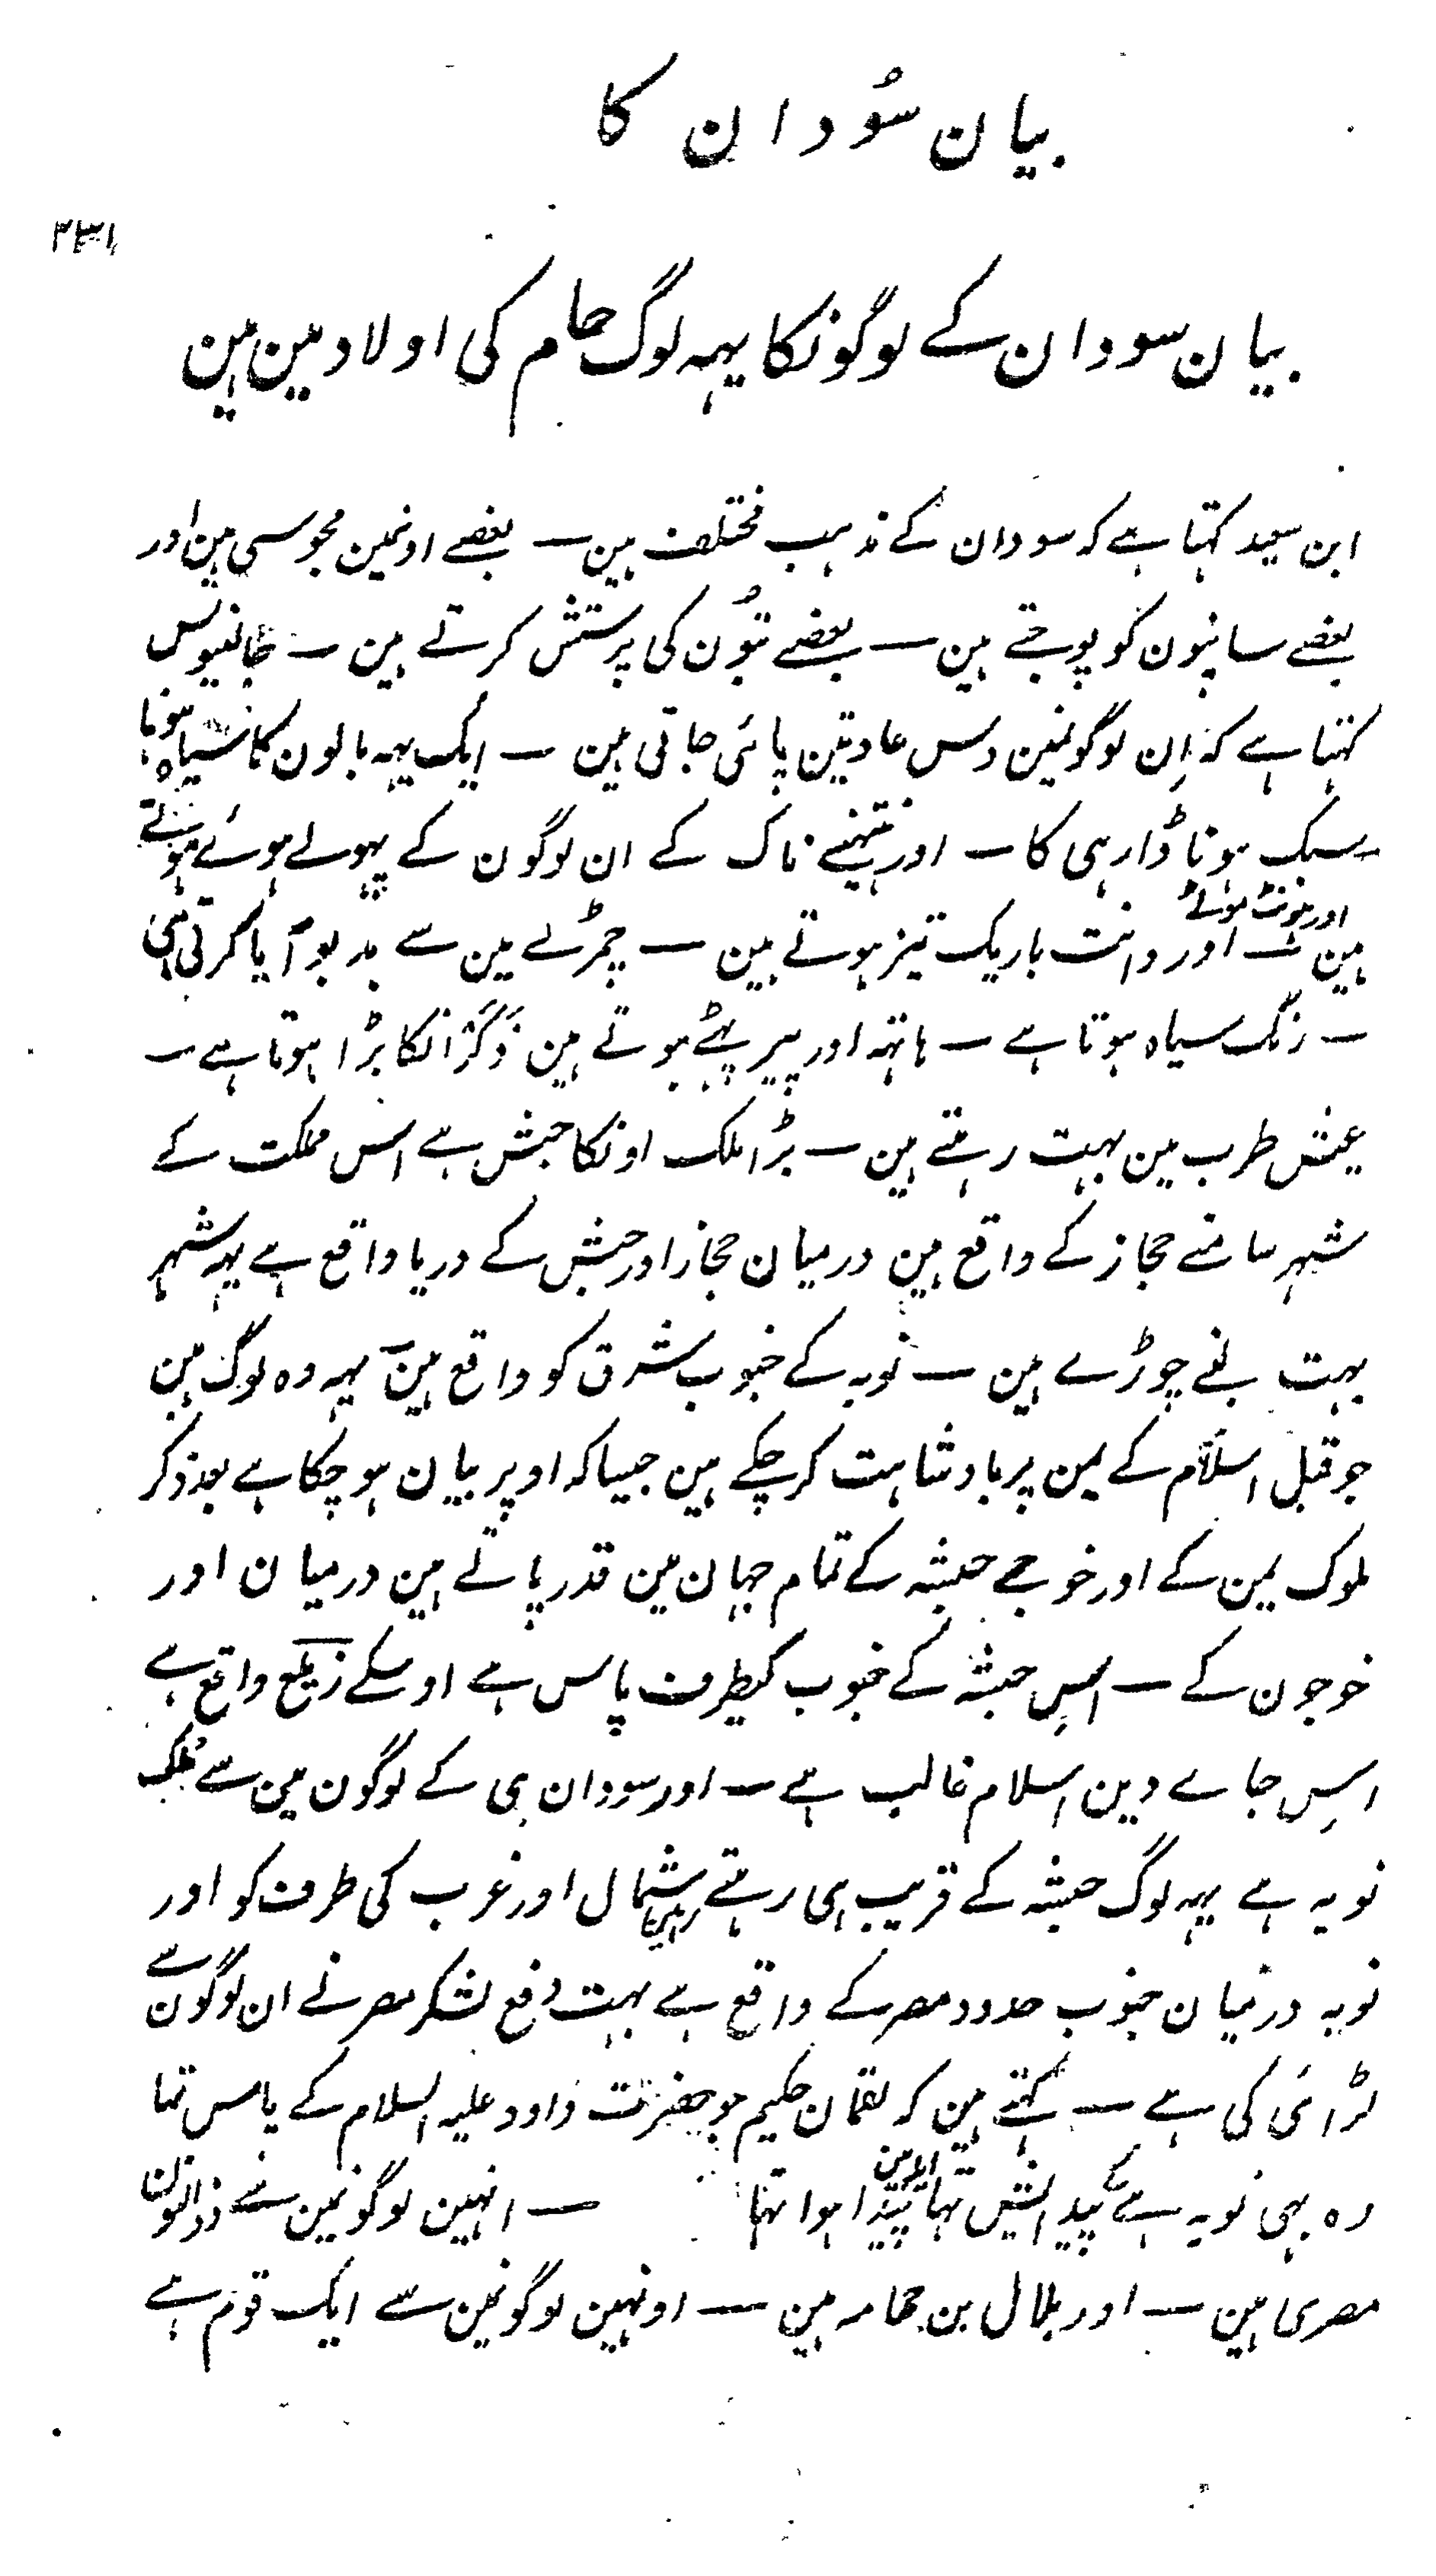 بیان سُودان کا
۲۳۱
بیان سودان کے لوگونکا یہہ لوگ حام کی اولاد مین ہین
ابن سعید کہتا ہے کہ سودان کے مذہب مختلف ہین ـ بعضے اونمین مجوسی ہین اور
بعضے سانپون کو پوجتے ہین ـ بعضے بتوُن کی پرستش کرتے ہین ـ جالنیوس
کہتا ہے کہ اِن لوگونمین دس عادتین پائی جاتی ہین ـ ایک یہہ بالون کا سیاہ ہونا
سبک ہونا ڈارہی کا ـ اور نتہنے ناک کے ان لوگون کے پہولے ہوئے ہوتے
ہین ـ اور ہونٹ موٹے اور دانت باریک تیز ہوتے ہین ـ چمڑے مین سے بدبو آیا کرتی ہی
ـ رنگ سیاہ ہوتا ہے ـ ہاتہہ اور پیر پہٹے ہوتے ہین ذَکَرْ انکا بڑا ہوتا ہے ـ
عیش طرب مین بہت رہتے ہین ـ بڑا ملک اونکا حبش ہے اس مملکت کے
شہر سامنے حجاز کے واقع ہین درمیان حجاز اور حبش کے دریا واقع ہے یہہ شہر
بہت لنبے چوڑے ہین ـ نوبہ کے جنوب شرق کو واقع ہین ـ یہہ وہ لوگ ہین
جو قبل اسلام کے یمن پر بادشاہت کر چکے ہین جیسا کہ اوپر بیان ہو چکا ہے بعد ذکر
ملوک یمن کے اور خوجے حبشہ کے تمام جہان مین قدر پاتے ہین درمیان اور
خوجون کے ـ اسِ حبشہ کے جنوب کیطرف پاس ہے اوسکے زیلع واقع ہے
اسِ جاے دین اسلام غالب ہے ـ اور سودان ہی کے لوگون مین سے ملک
نوبہ ہے یہہ لوگ حبشہ کے قریب ہی رہتے ہین شمال اور غرب کی طرف کو اور
نوبہ درمیان جنوب حدود مصر کے واقع ہے بہت دفع لشکر مصر نے ان لوگون سے
لڑائی کی ہے ـ کہتے ہین کہ لقمان حکیم جو حضرت داود علیہ السلام کے پاس تہا
وہ بہی نوبہ سے پیدایش تہا ایلہ مین پیدا ہوا تہا ـ انہین لوگونمین سے ذوالنون
مصری ہین ـ اور بلال بن حمامہ ہین ـ اونہین لوگونمین سے ایک قوم ہے